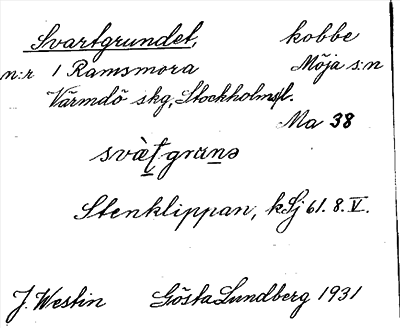 Svartgrundet, kobbe
n:r 1 Ramsmora Möja s:n
Värmdö skg, Stockholms l.
Ma 38
Stenklippan, kSj 61. 8. V.
J. Westin Gösta Lundberg 1931